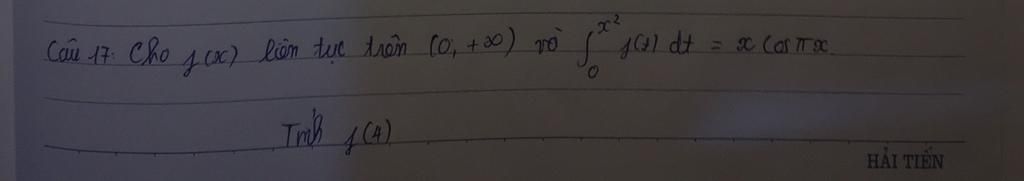 Câu 17: Cho f(x) liên tục trên (0; +∞) và ∫₀^{x²} f(t) dt = x cos πx
Tính f(4)
HẢI TIẾN